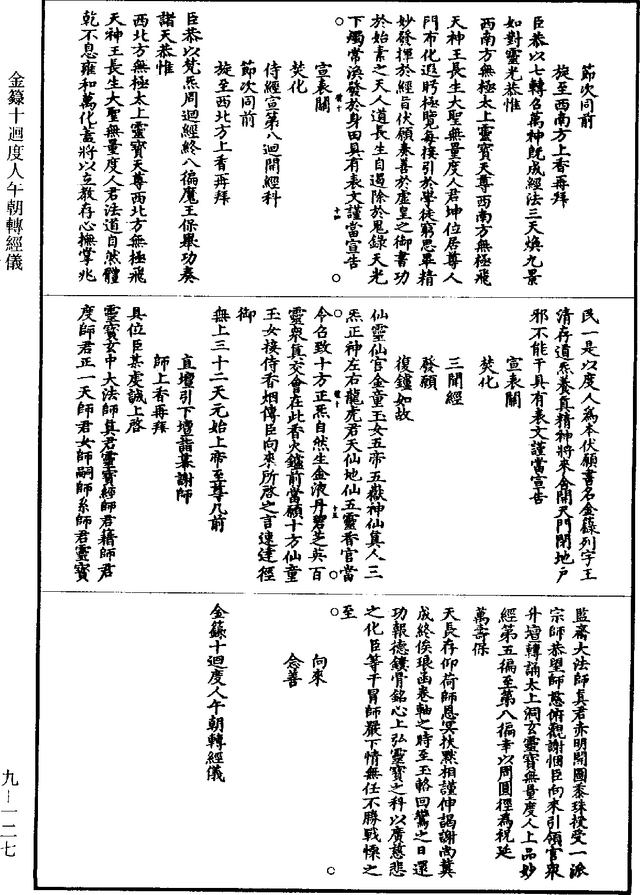 節次同前
旋至西南方上香再拜
臣恭以七轉召萬神旣成經法三天煥九景
如對靈光恭惟
西南方無極太上靈寶天尊西南方無極飛
天神王長生大聖無量度人君坤位居尊人
門布化遐眄極覽每接引於學徒窮思畢精
妙發揮於經旨伏願奏善於虛皇之御書功
於始素之天人道長生自過除於鬼錄天光
下燭常渙發於身田具有表文謹當宣告
宣表關
焚化
侍經宣第八迴開經科
節次同前
旋至西北方上香再拜
臣恭以梵炁周迴經終八徧魔王保舉功奏
諸天恭惟
西北方無極太上靈寶天尊西北方無極飛
天神王長生大聖無量度人君法道自然體
乾不息雍和萬化蓋將以立教存心撫掌兆
民一是以度人爲本伏願書名金籙列字玉
清存道炁養真精神將來合開天門閉地戶
邪不能干具有表文謹當宣告
宣表關
焚化
三聞經
發願
復鐘如故
仙靈仙官金童玉女五帝五嶽神仙真人三
炁正神左右龍虎君天仙地仙五靈香官當
今召致十方正炁自然生金液丹碧芝英百
靈衆真交會在此香火鑪前當願十方仙童
玉女接侍香烟傳臣向來所啓之言速達徑
御
無上三十二天元始上帝至尊几前
直壇引下壇詣幕謝師
師上香再拜
具位臣某虔誠上啓
靈寶玄中大法師真君靈寶經師君籍師君
度師君正一天師君女師嗣師系師君靈寶
監齋大法師真君赤明開圖黍珠授受一派
宗師恭望師慈俯觀謝悃臣向來引領官衆
升壇轉誦太上洞玄靈寶無量度人上品妙
經第五徧至第八徧幸以周圓徑爲祝延
萬壽保
天長存仰荷師恩冥扶默相謹伸謁謝尚冀
成終俟琅函卷軸之時至玉輅回鸞之日還
功報德鏤骨銘心上弘靈寶之科以廣慈悲
之化臣等干冒師嚴下情無任不勝戰慄之
至
向來
念善
金籙十迴度人午朝轉經儀
金籙十迴度人午朝轉經儀
九－一二七